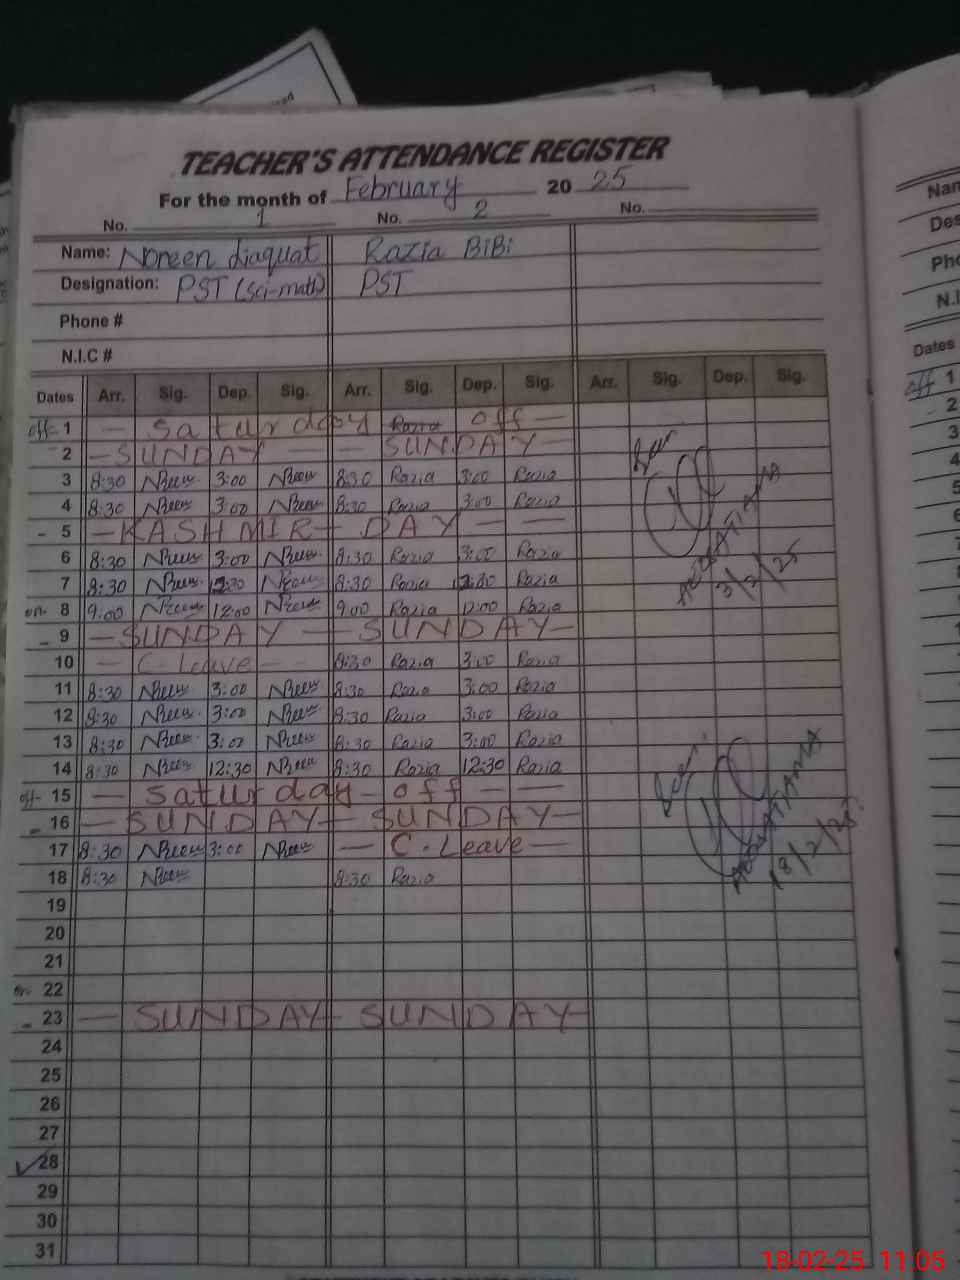 TEACHER'S ATTENDANCE REGISTER
For the month of February 20 25
No. 1 No. 2 No.
Name: Noreen Liaquat Razia BiBi
Designation: PST (Sci-math) PST
Phone #
N.I.C #
Dates Arr. Sig. Dep. Sig. Arr. Sig. Dep. Sig. Arr. Sig. Dep. Sig.
off- 1 — Saturday Razia off —
2 — SUNDAY — — SUNDAY —
3 8:30 3:00 8:30 Razia 3:00 Razia
4 8:30 3:00 8:30 Razia 3:00 Razia
- 5 — KASHMIR — DAY — —
6 8:30 3:00 8:30 Razia 3:00 Razia
7 8:30 12:30 8:30 Razia 12:30 Razia
on- 8 9:00 12:00 9:00 Razia 12:00 Razia
- 9 — SUNDAY — SUNDAY —
10 — C-Leave — 8:30 Razia 3:00 Razia
11 8:30 3:00 8:30 Razia 3:00 Razia
12 8:30 3:00 8:30 Razia 3:00 Razia
13 8:30 3:00 8:30 Razia 3:00 Razia
14 8:30 12:30 8:30 Razia 12:30 Razia
off- 15 — Saturday — off — —
- 16 — SUNDAY — SUNDAY —
17 8:30 3:00 — C-Leave —
18 8:30 8:30 Razia
19
20
21
on- 22
- 23 — SUNDAY — SUNDAY —
24
25
26
27
28
29
30
31
3/2/25
18/2/25
Dates
off 1
2
3
4
5
18-02-25 11:05